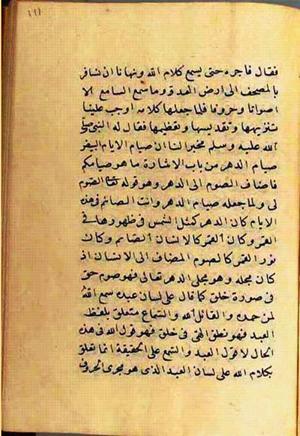 ١٩١
فقال فاجره حتى يسمع كلام الله ونهانا ان نسافر
بالمصحف الى ارض العدو وما سمع السامع الا
اصواتا وحروفا فلما جعلها كلامه اوجب علينا
تنزيهها وتقديسها وتعظيمها فقال له النبى صلى
الله عليه وسلم مخبرا لنا ان صيام الايام البيض
صيام الدهر من باب الاشارة ما هو صيامكم
فاضاف الصوم الى الدهر وهو قوله الصوم
لى ولما جعله صيام الدهر وانت الصائم فى هذه
الايام كان الدهر كمثل الشمس فى ظهورها فى
القمر وكان القمر كالانسان الصائم وكان
نور القمر كالصوم المضاف الى الانسان اذ
كان محله وهو مجلى الدهر تعالى فهو صوم حق
فى صورة خلق كما قال على لسان عبده سمع الله
لمن حمده والقائل الله والسماع متعلق بلفظ
العبد فهو نطق الحق فى خلق فهو قول الله فى هذه
الحال لا قول العبد والسمع على الحقيقة انما تعلق
بكلام الله على لسان العبد الذى هو مجرى الحرف